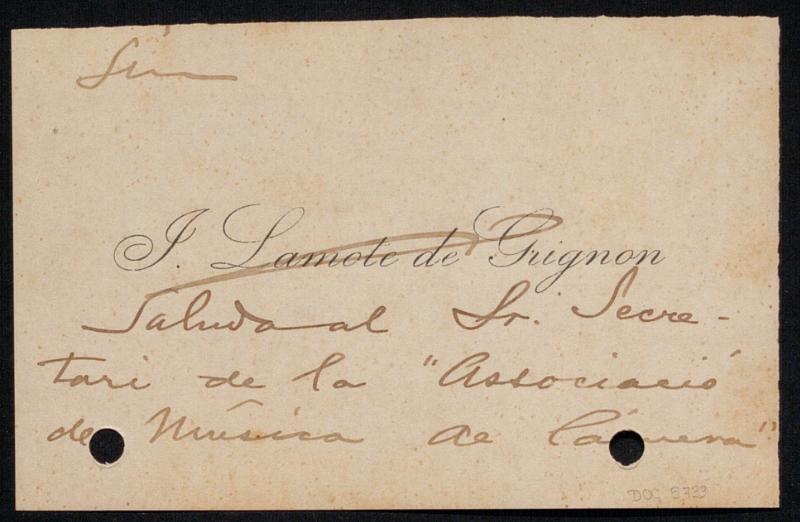 J. Lamote de Grignon
Saluda al Sr. Secre-
tari de la "Associació
de Música de Càmera"
DOC 8733